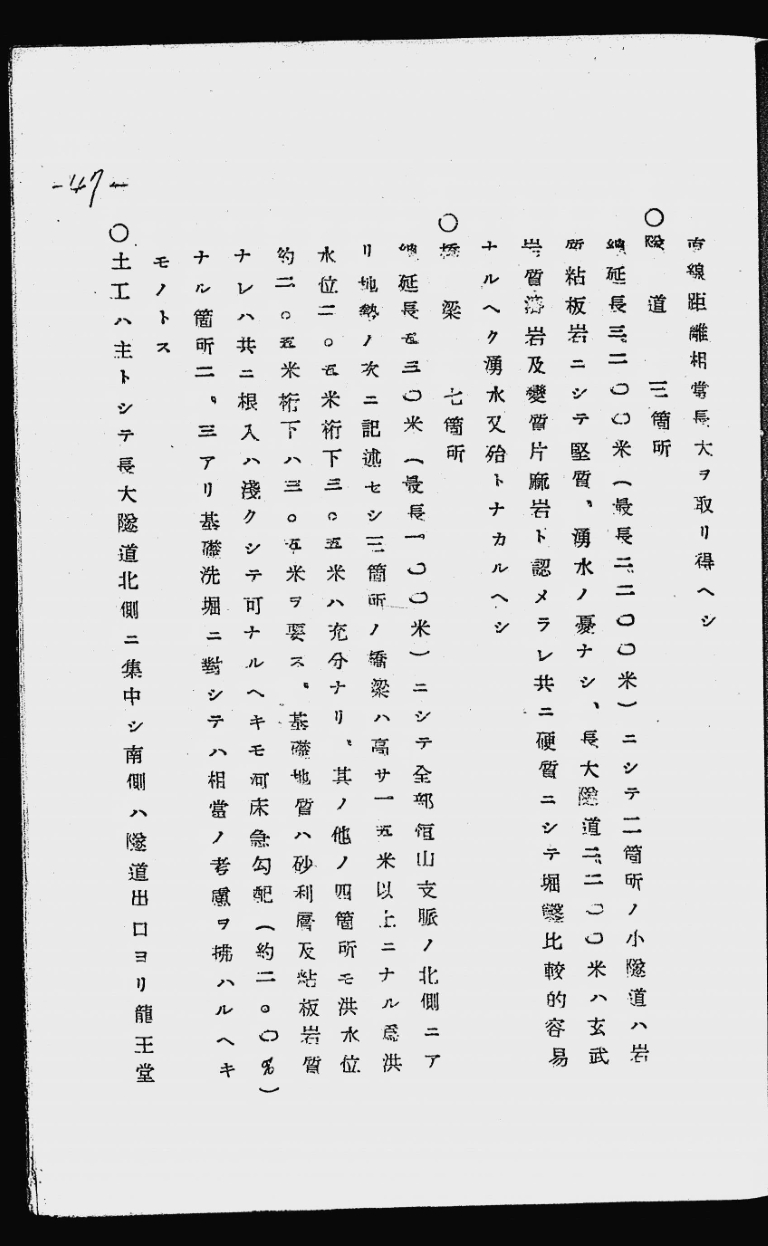 直線距離相當長大ヲ取リ得ヘシ
○隧道 三箇所
總延長三.二〇〇米(最長二.二〇〇米)ニシテ二箇所ノ小隧道ハ岩
質粘板岩ニシテ堅質、湧水ノ憂ナシ、長大隧道二.二〇〇米ハ玄武
岩質熔岩及變質片麻岩ト認メラレ共ニ硬質ニシテ堀鑿比較的容易
ナルヘク湧水又殆トナカルヘシ
○橋梁 七箇所
總延長五三〇米(最長一〇〇米)ニシテ全部恒山支脈ノ北側ニア
リ地勢ノ次ニ記述セシ三箇所ノ橋梁ハ高サ一五米以上ニナル爲洪
水位二。五米桁下三。五米ハ充分ナリ、其ノ他ノ四箇所モ洪水位
約二。五米桁下ハ三。五米ヲ要ス、基礎地質ハ砂利層及粘板岩質
ナレハ共ニ根入ハ淺クシテ可ナルヘキモ河床急勾配(約二。〇%)
ナル箇所二、三アリ基礎洗堀ニ對シテハ相當ノ考慮ヲ拂ハルヘキ
モノトス
○土工ハ主トシテ長大隧道北側ニ集中シ南側ハ隧道出口ヨリ龍王堂
-47-